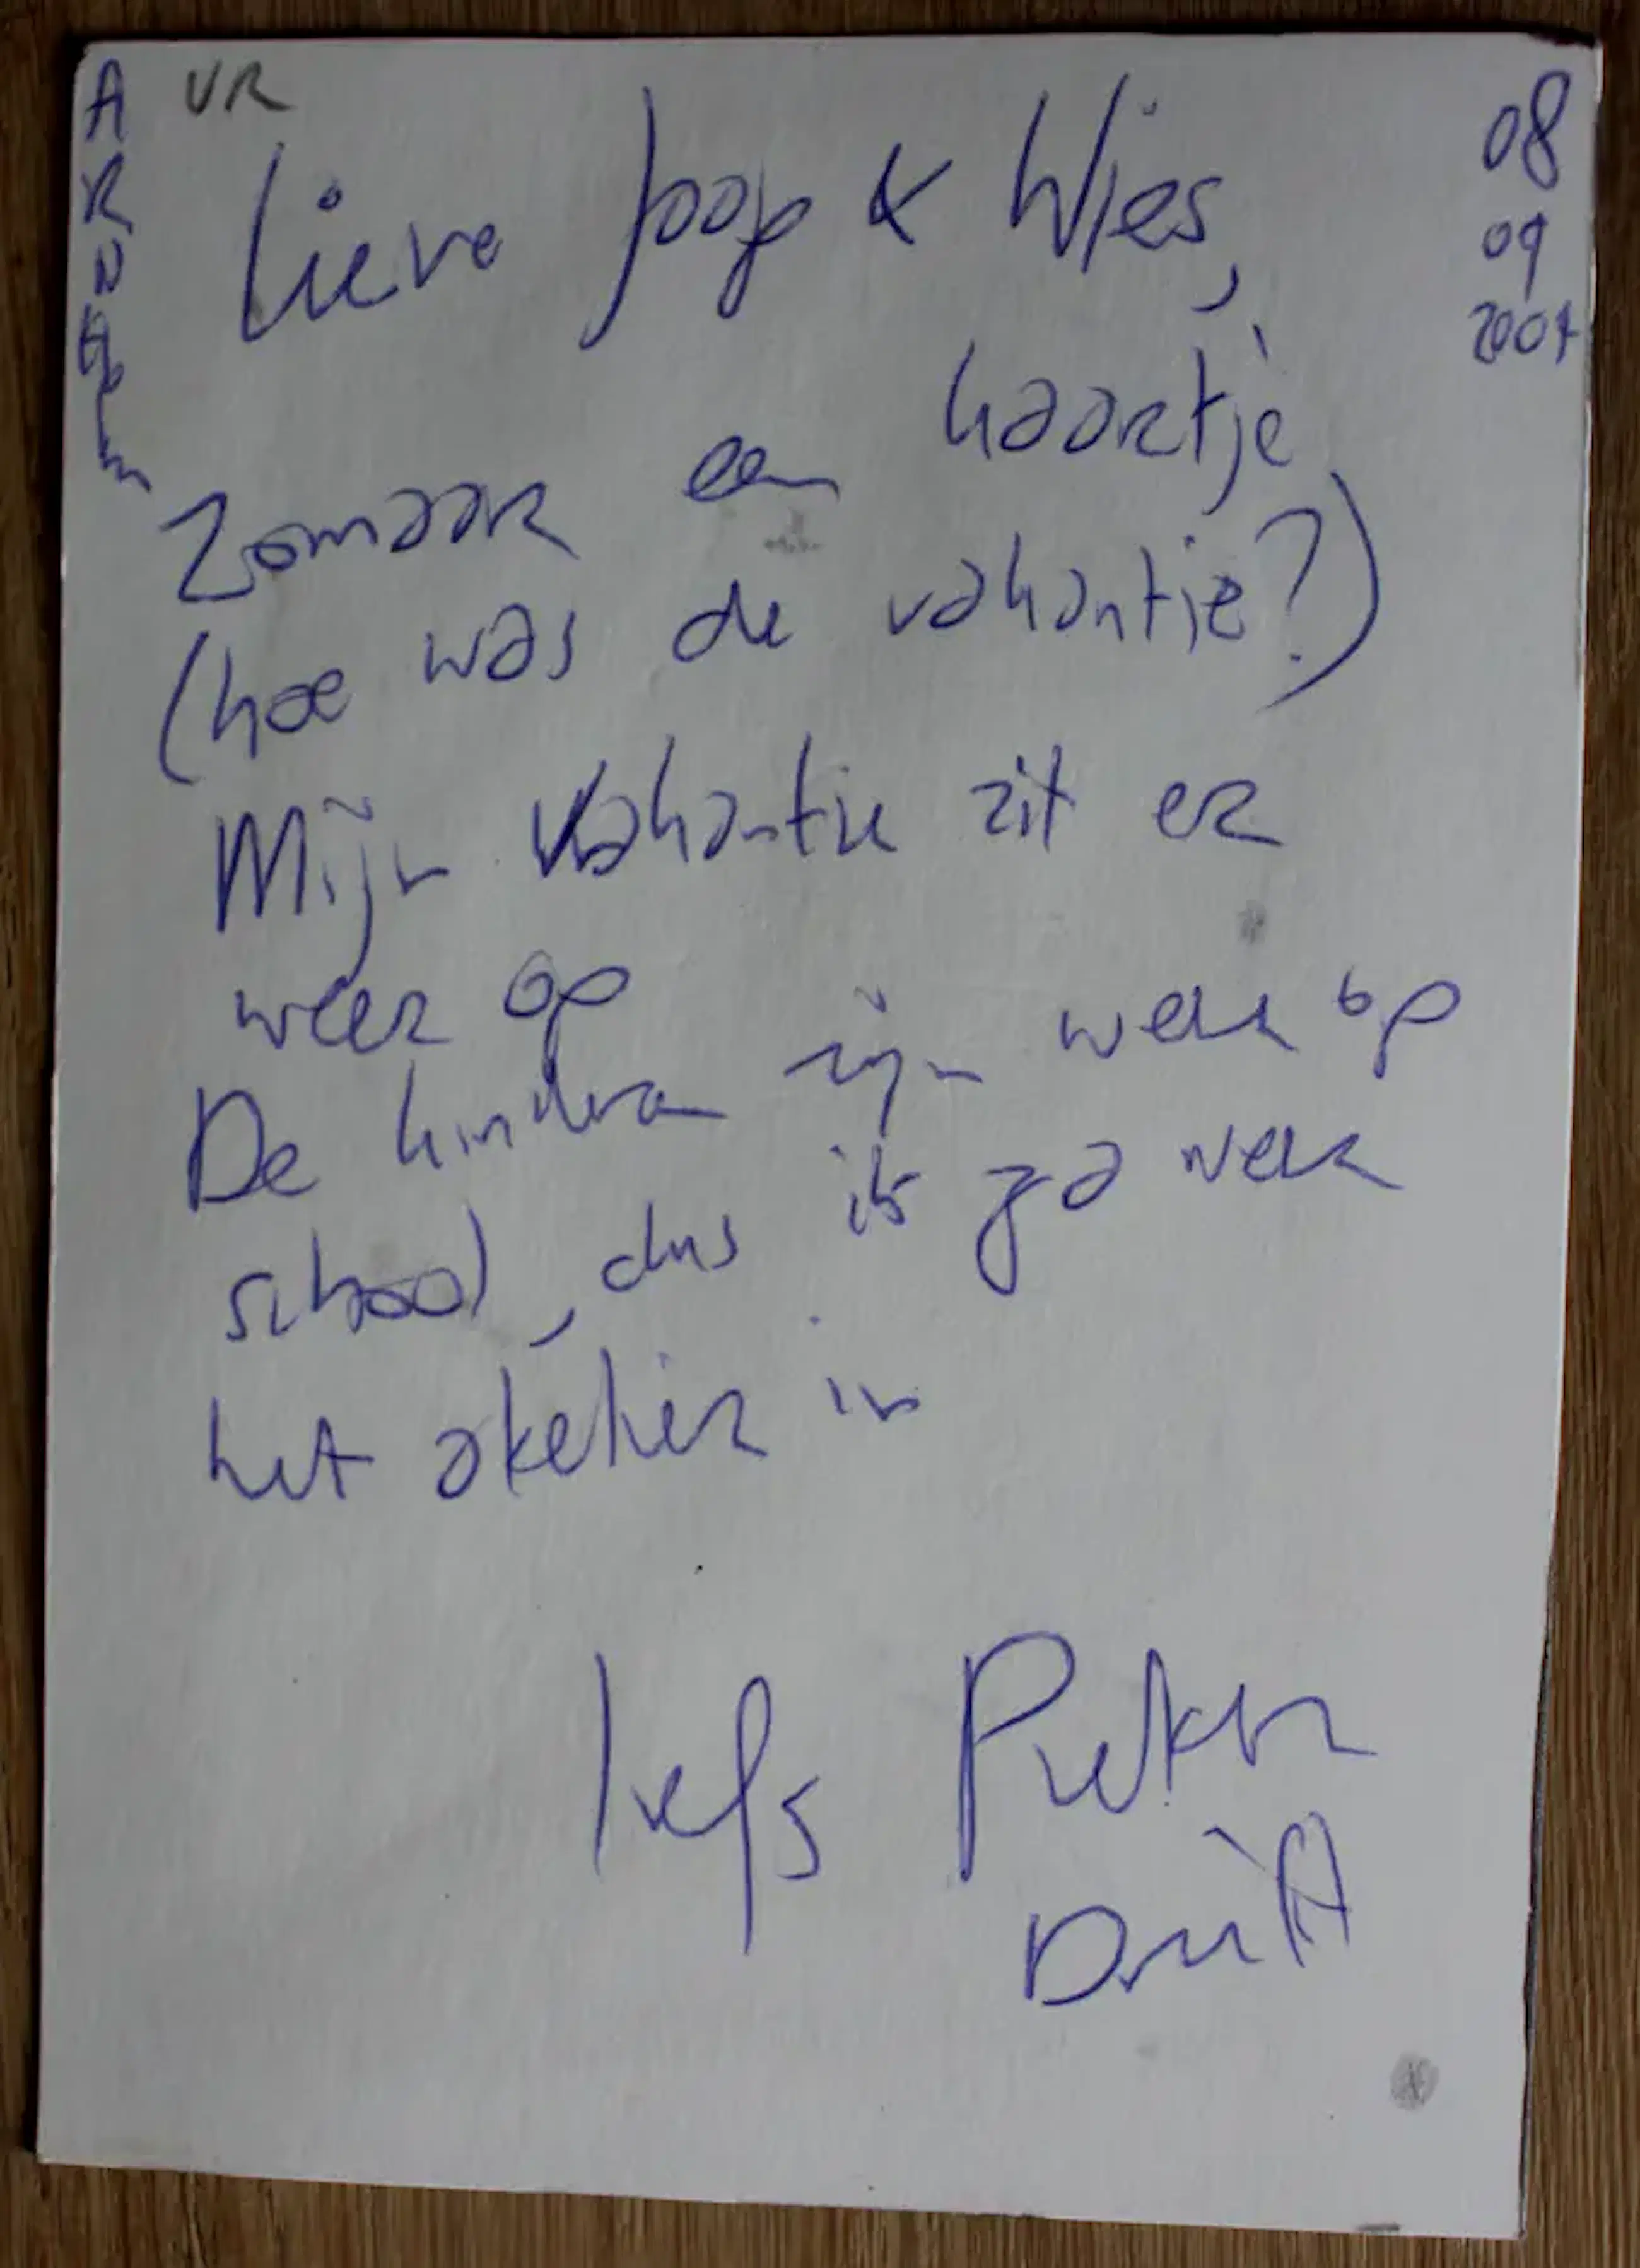 ARNhem
VR
08
09
2004
Lieve Joop & Wies,
Zomaar een kaartje
(hoe was de vakantie?)
Mijn vakantie zit er
weer op
De kinderen zijn weer op
school, dus ik ga weer
het atelier in
liefs Pieter